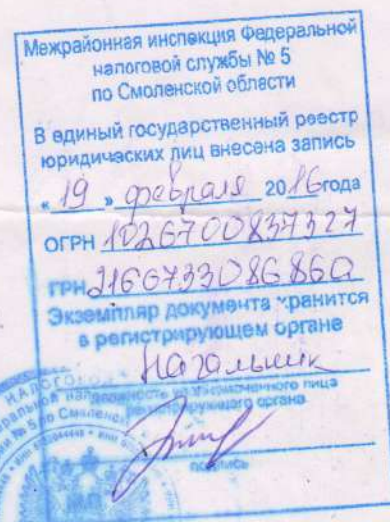 Межрайонная инспекция Федеральной
налоговой службы № 5
по Смоленской области
В единый государственный реестр
юридических лиц внесена запись
« 19 » февраля 2016 года
ОГРН 1026700837327
ГРН 2166733086860
Экземпляр документа хранится
в регистрирующем органе
Начальник
должность уполномоченного лица
регистрирующего органа
подпись